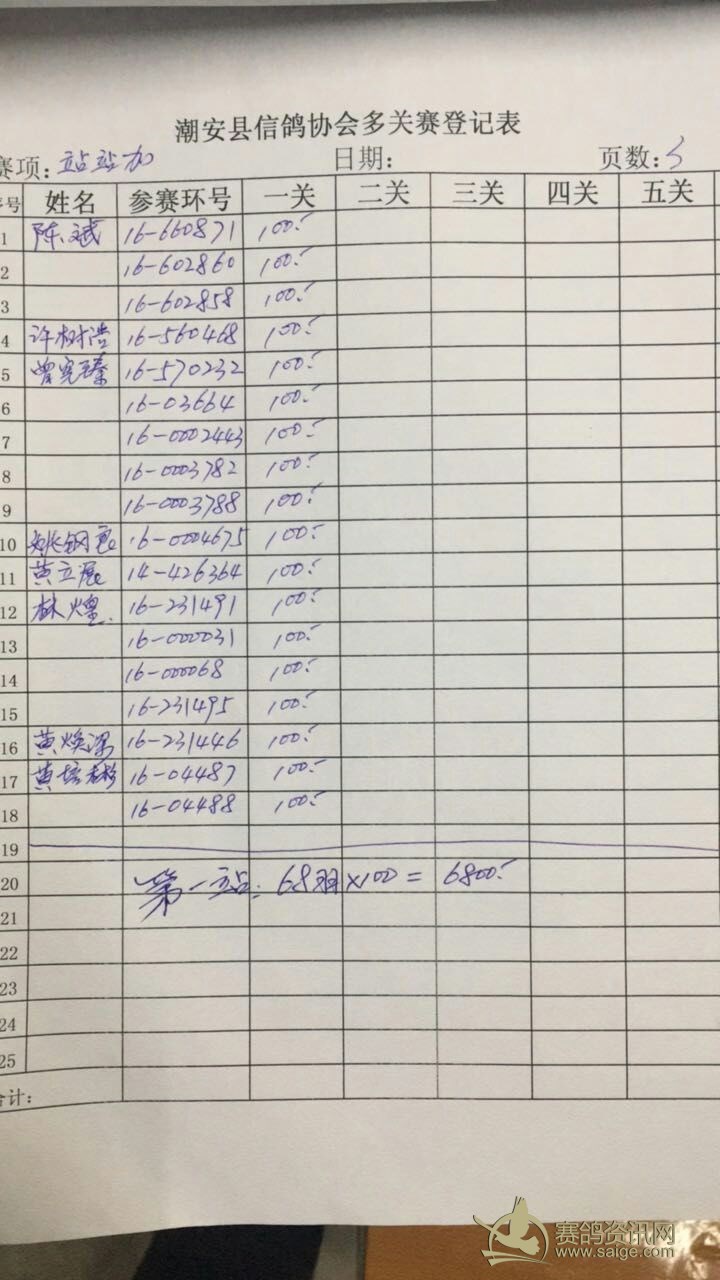 潮安县信鸽协会多关赛登记表
赛项: 站站加 日期: 页数: 3
序号 姓名 参赛环号 一关 二关 三关 四关 五关
1 陈斌 16-660871 100.-
2 16-602860 100.-
3 16-602858 100.-
4 许树浩 16-560468 100.-
5 曾宪臻 16-570232 100.-
6 16-03664 100.-
7 16-0002443 100.-
8 16-0003782 100.-
9 16-0003788 100.-
10 姚钢亮 16-0004675 100.-
11 黄立展 14-426364 100.-
12 林煌 16-231491 100.-
13 16-000031 100.-
14 16-000068 100.-
15 16-231495 100.-
16 黄焕深 16-231446 100.-
17 黄培彬 16-04487 100.-
18 16-04488 100.-
19
20 第一站: 68羽×100= 6800.-
21
22
23
24
25
合计:
赛鸽资讯网
www.saige.com